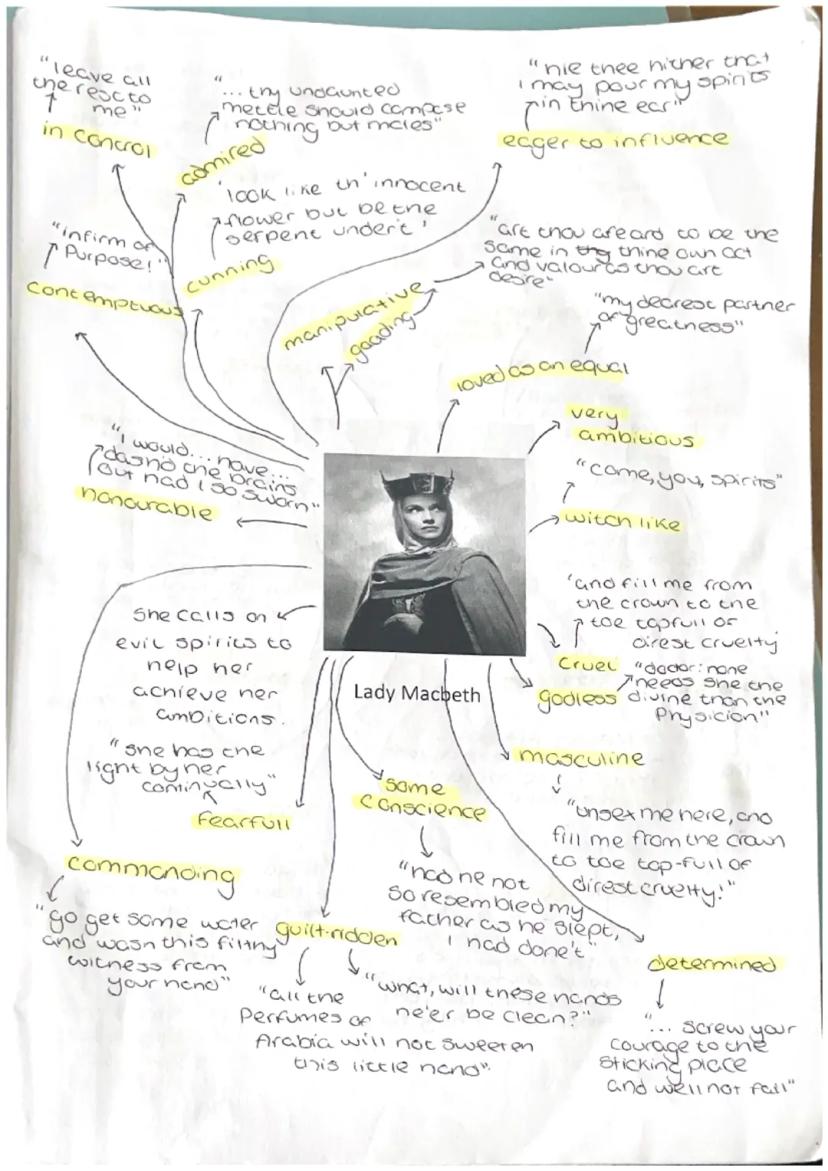 "leave all
the rest to
me"
in control
"
... thy undaunted
mettle should compose
nothing but males"
admired
"hie thee hither that
I may pour my spirits
in thine ear"
eager to influence
'look like th' innocent
flower but be the
serpent undert'
cunning
"infirm of
Purpose!"
contemptuous
"art thou afeard to be the
same in thy thine own act
and valour as thou art
desire"
manipulative
goading
"my dearest partner
of greatness"
loved as an equal
very
ambitious
"come, you, spirits"
witch like
"I would... have...
dash'd the brains
out had I so sworn"
honourable
'and fill me from
the crown to the
toe topfull of
direst cruelty
cruel
"doctor: none
needs she the
divine than the
Physicion"
godless
She calls on
evil spirits to
help her
achieve her
ambitions.
Lady Macbeth
masculine
"unsex me here, and
fill me from the crown
to toe top-full of
direst cruelty!"
"she has the
light by her
continually"
fearfull
some
conscience
"had he not
so resembled my
father as he slept,
I had done't"
commanding
"go get some water
and wash this filthy
witness from
your hand"
guilt-ridden
"all the
Perfumes of
Arabia will not sweeten
this little hand".
"what, will these hands
ne'er be clean?"
determined
"
... screw your
courage to the
sticking place
and we'll not fail"